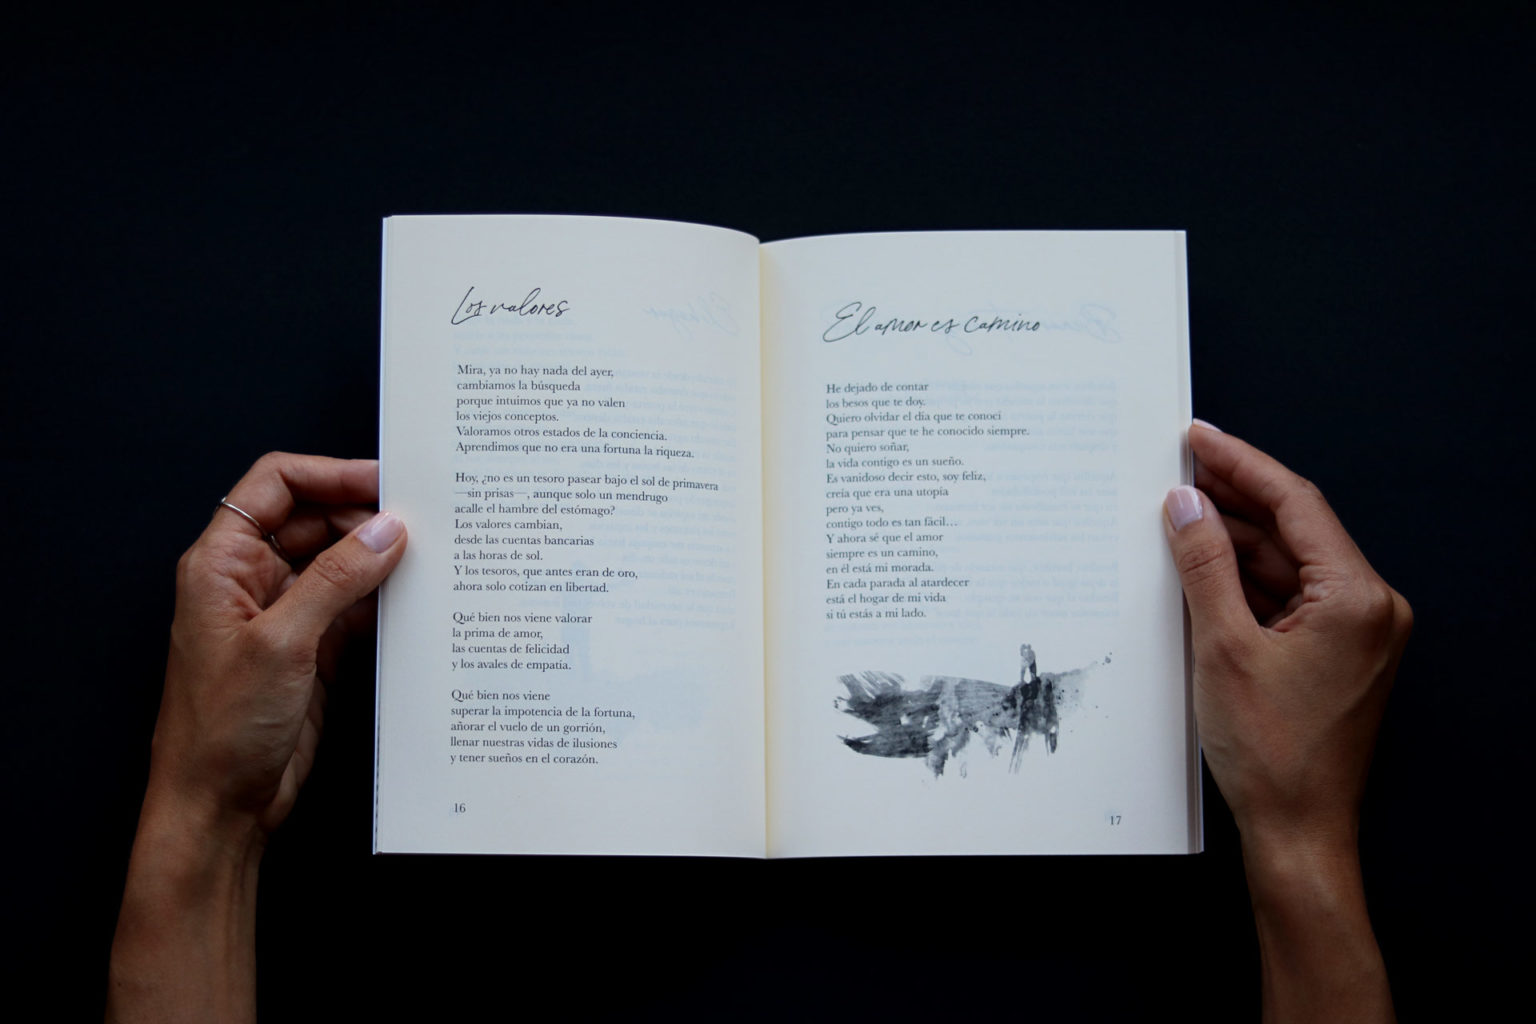 Los valores
Mira, ya no hay nada del ayer,
cambiamos la búsqueda
porque intuimos que ya no valen
los viejos conceptos.
Valoramos otros estados de la conciencia.
Aprendimos que no era una fortuna la riqueza.
Hoy, ¿no es un tesoro pasear bajo el sol de primavera
—sin prisas—, aunque solo un mendrugo
acalle el hambre del estómago?
Los valores cambian,
desde las cuentas bancarias
a las horas de sol.
Y los tesoros, que antes eran de oro,
ahora solo cotizan en libertad.
Qué bien nos viene valorar
la prima de amor,
las cuentas de felicidad
y los avales de empatía.
Qué bien nos viene
superar la impotencia de la fortuna,
añorar el vuelo de un gorrión,
llenar nuestras vidas de ilusiones
y tener sueños en el corazón.
16
El amor es camino
He dejado de contar
los besos que te doy.
Quiero olvidar el día que te conocí
para pensar que te he conocido siempre.
No quiero soñar,
la vida contigo es un sueño.
Es vanidoso decir esto, soy feliz,
creía que era una utopía
pero ya ves,
contigo todo es tan fácil...
Y ahora sé que el amor
siempre es un camino,
en él está mi morada.
En cada parada al atardecer
está el hogar de mi vida
si tú estás a mi lado.
17